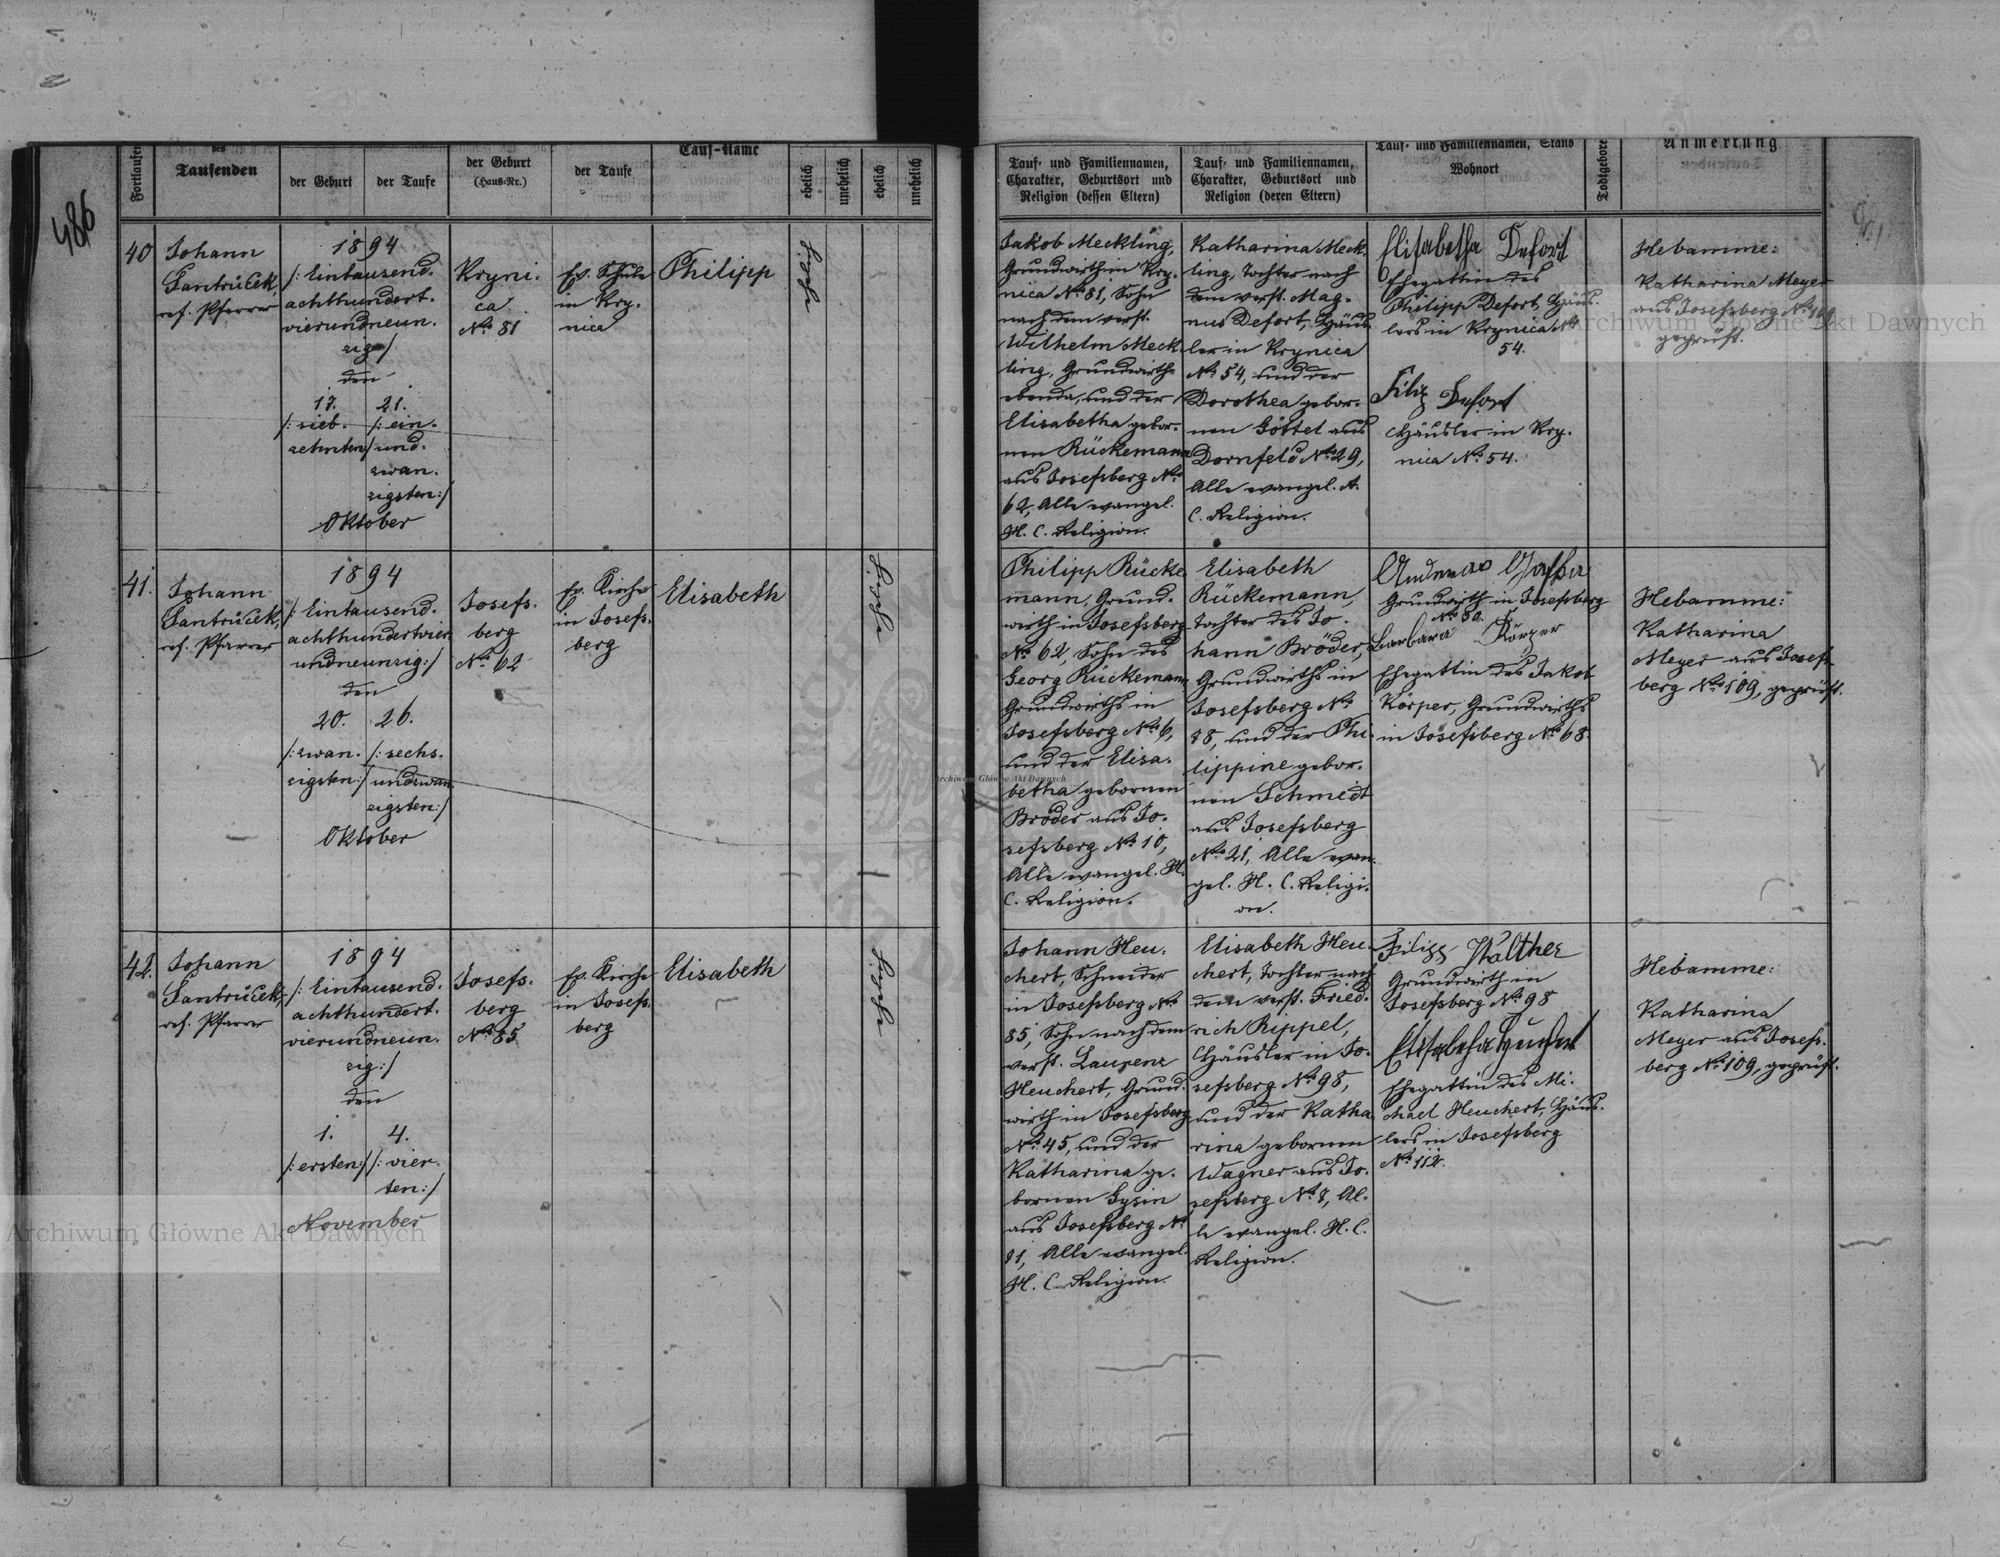 486
Fortlaufen
des
Taufenden
der Geburt
der Taufe
der Geburt
(Haus-Nr.)
der Taufe
Tauf-Name
ehelich
unehelich
ehelich
unehelich
40
Johann
Jantrúček,
ref. Pfarrer
1894
/: Eintausend.
achthundert.
vierundneun.
zig:/
den
17. 21.
/: sieb. /: ein.
zehnten:/ und.
zwan.
zigsten:/
Oktober
Kryni.
ca
No 81
Ev. Schule
in Kry.
nica
Philipp
eheliche
41.
Johann
Jantrúček,
ref. Pfarrer
1894
/: Eintausend.
achthundertvier
undneunzig:/
den
20. 26.
/: zwan. /: sechs.
zigsten:/ undzwan.
zigsten:/
Oktober
Josefs.
berg
No 62
Ev. Kirche
in Josefs.
berg
Elisabeth
eheliche
42.
Johann
Jantrúček,
ref. Pfarrer
1894
/: Eintausend.
achthundert.
vierundneun.
zig:/
den
1. 4.
/: ersten:/ /: vier.
ten:/
November
Josefs.
berg
No 85
Ev. Kirche
in Josefs.
berg
Elisabeth
eheliche
Tauf- und Familiennamen,
Charakter, Geburtsort und
Religion (dessen Eltern)
Tauf- und Familiennamen,
Charakter, Geburtsort und
Religion (deren Eltern)
Tauf- und Familiennamen, Stand
Wohnort
Todtgebore
Anmerkung
Jakob Meckling,
Grundwirth in Kry.
nica No 81, Sohn
nach dem verst.
Wilhelm Meck
ling, Grundwirth
ebenda, und der
Elisabetha gebor.
nen Rückemann
aus Josefsberg No
62, Alle evangel.
H. C. Religion.
Katharina Meck.
ling, Tochter nach
dem verst. Mag.
nus Defort, Häus
ler in Krynica
No 54, und der
Dorothea gebor.
nen Göttel aus
Dornfeld No 29,
Alle evangel. A.
C. Religion.
Elisabetha Defort
Ehegattin des
Philipp Defort, Häus.
lers in Krynica No
54.
Filip Defort
Häusler in Kry.
nica No 54.
Hebamme:
Katharina Meyer
aus Josefsberg No 109
geprüft.
Philipp Rücke
mann, Grund.
wirth in Josefsberg
No 62, Sohn des
Georg Rückemann
Grundwirths in
Josefsberg No 6,
und der Elisa.
betha gebornen
Bröder aus Jo.
sefsberg No 10,
Alle evangel. H.
C. Religion.
Elisabeth
Rückemann,
Tochter des Jo.
hann Bröder,
Grundwirths in
Josefsberg No
88, und der Phi
lippine gebor.
nen Schmidt
aus Josefsberg
No 21, Alle evan.
gel. H. C. Religi.
on.
Grundwirth in Josefsberg
No 50.
Barbara Körper
Ehegattin des Jakob
Körper, Grundwirths
in Josefsberg No 68.
Hebamme:
Katharina
Meyer aus Josefs
berg No 109, geprüft.
Johann Heu.
chert, Schneider
in Josefsberg No
85, Sohn nach dem
verst. Laurenz
Heuchert, Grund.
wirth in Josefsberg
No 45, und der
Katharina ge.
bornen Gysin
aus Josefsberg No
81, Alle evangel.
H. C. Religion.
Elisabeth Heu
chert, Tochter nach
dem verst. Fried.
rich Rippel,
Häusler in Jo.
sefsberg No 98,
und der Katha
rina gebornen
Wagner aus Jo.
sefsberg No 8, Al.
le evangel. H. C.
Religion.
Filipp Walther
Grundwirth in
Josefsberg No 98
Elisabetha Heuchert
Ehegattin des Mi.
chael Heuchert, Häus.
lers in Josefsberg
No 112.
Hebamme:
Katharina
Meyer aus Josefs.
berg No 109, geprüft.
Archiwum Główne Akt Dawnych
Archiwum Główne Akt Dawnych
Archiwum Główne Akt Dawnych